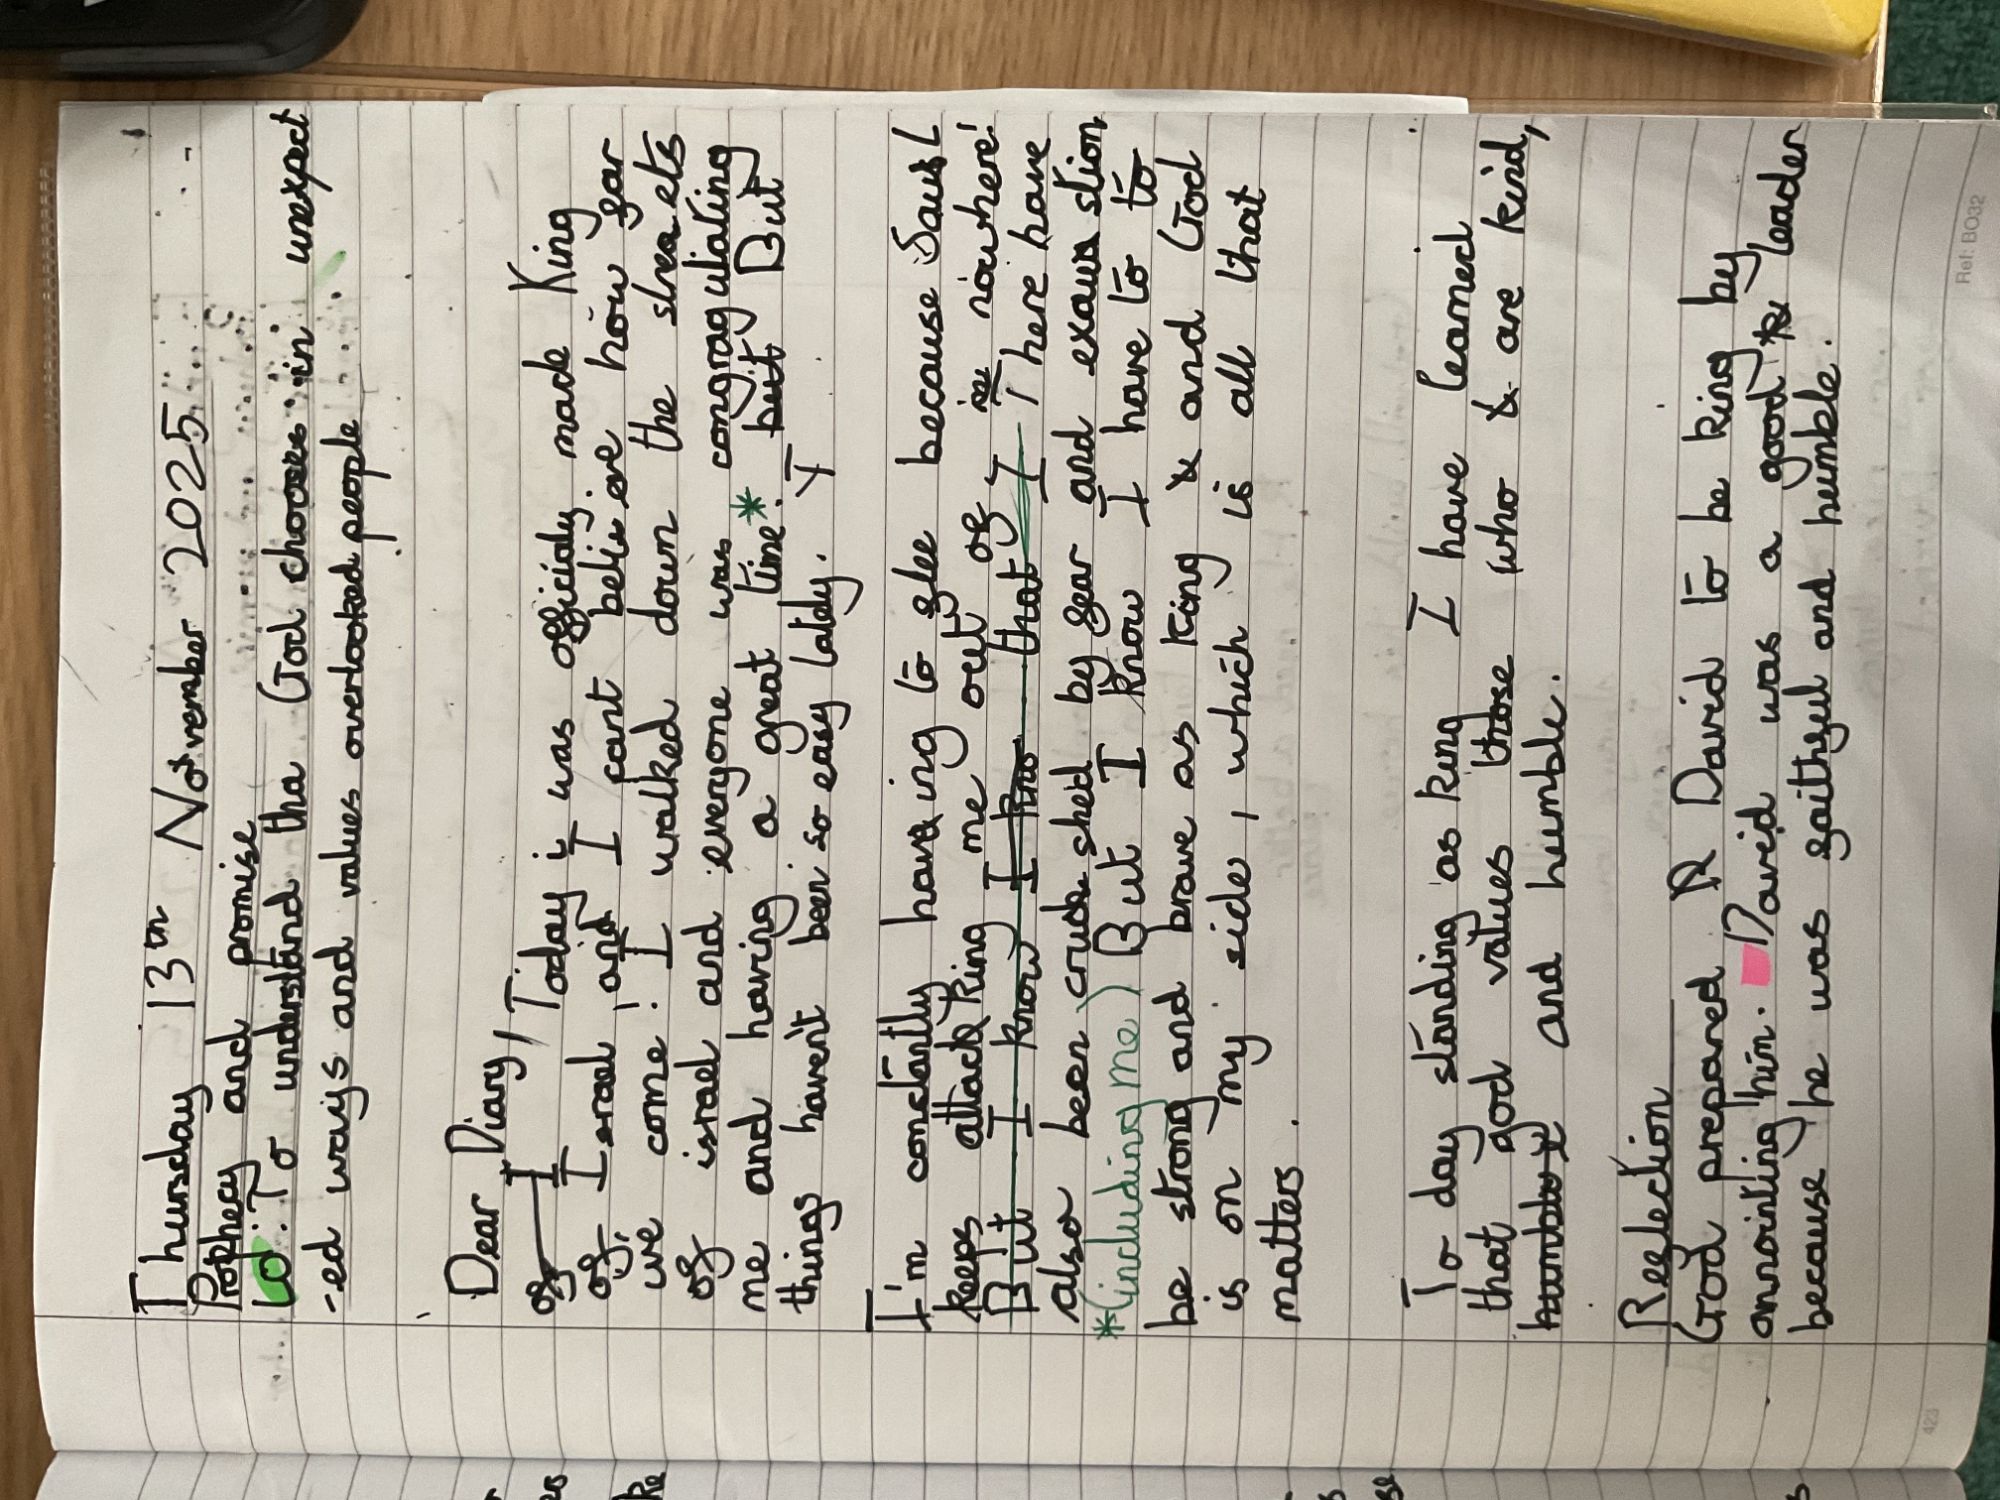 Thursday 13th November 2025
Prophecy and promise
Lo: To understand tha God chooses in unexpect
-ed ways and values overlooked people
Dear Diary, Today i was officialy made King
of I
of, Israel and I cant believe how far
we come! I walked down the streets
of israel and everyone was congragulating
me and having a great time*. but But
things haven't been so easy lately. I
I'm constantly having to flee because Saul
keeps attacking me out of nowhere!
But I know I kno that I There have
also been crushed by fear and exaustion
*(including me) But I know I have to to
be strong and brave as King & and God
is on my side, which is all that
matters.
To day standing as king I have learned
that god values those who are kind,
and humble.
Reflection
God prepared David to be king by
annointing him. David was a good leader
because he was faithful and humble.
Ref: BO32
423